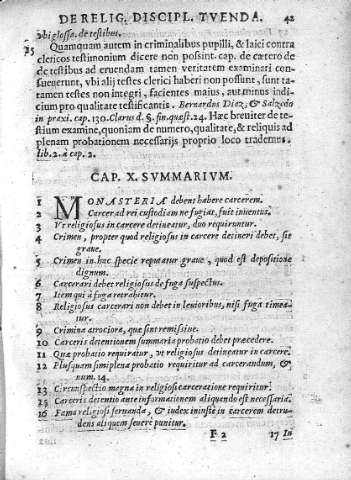 DE RELIG. DISCIPL. TVENDA. 42
vbi glossa. de testibus.
35 Quamquam autem in criminalibus pupilli, & laici contra
clericos testimonium dicere non possint. cap. de cætero de
de testibus ad eruendam tamen veritatem examinari con-
sueuerunt, vbi alij testes clerici haberi non possunt, sunt ta-
tamen testes non integri, facientes maius, aut minus indi-
cium pro qualitate testificantis. Bernardus Diaz, & Salzedo
in praxi. cap. 130. Clarus d. §. fin. quæst. 24. Hæc breuiter de te-
stium examine, quoniam de numero, qualitate, & reliquis ad
plenam probationem necessarijs proprio loco trademus.
lib. 2. à cap. 2.
CAP. X. SVMMARIVM.
1 MONASTERIA debent habere carcerem.
2 Carcer ad rei custodiam ne fugiat, fuit inuentus.
3 Vt religiosus in carcere detineatur, duo requiruntur.
4 Crimen, propter quod religiosus in carcere detineri debet, sit
graue.
5 Crimen in hac specie reputatur graue, quod est depositione
dignum.
6 Carcerari debet religiosus de fuga suspectus.
7 Item qui à fuga retrahitur.
8 Religiosus carcerari non debet in leuioribus, nisi fuga timea-
tur.
9 Crimina atrociora, quæ sint remissiue.
10 Carceris detentionem summaria probatio debet præcedere.
11 Quæ probatio requiratur, vt religiosus detineatur in carcere.
12 Plusquam simiplena probatio requiritur ad carcerandum, &
num. 14.
13 Circunspectio magna in religiosi carceratione requiritur.
15 Carceris detentio ante informationem aliquando est necessaria.
16 Fama religiosi seruanda, & iudex iniuste in carcerem detru-
dens aliquem seuere punitur.
F 2 17 In